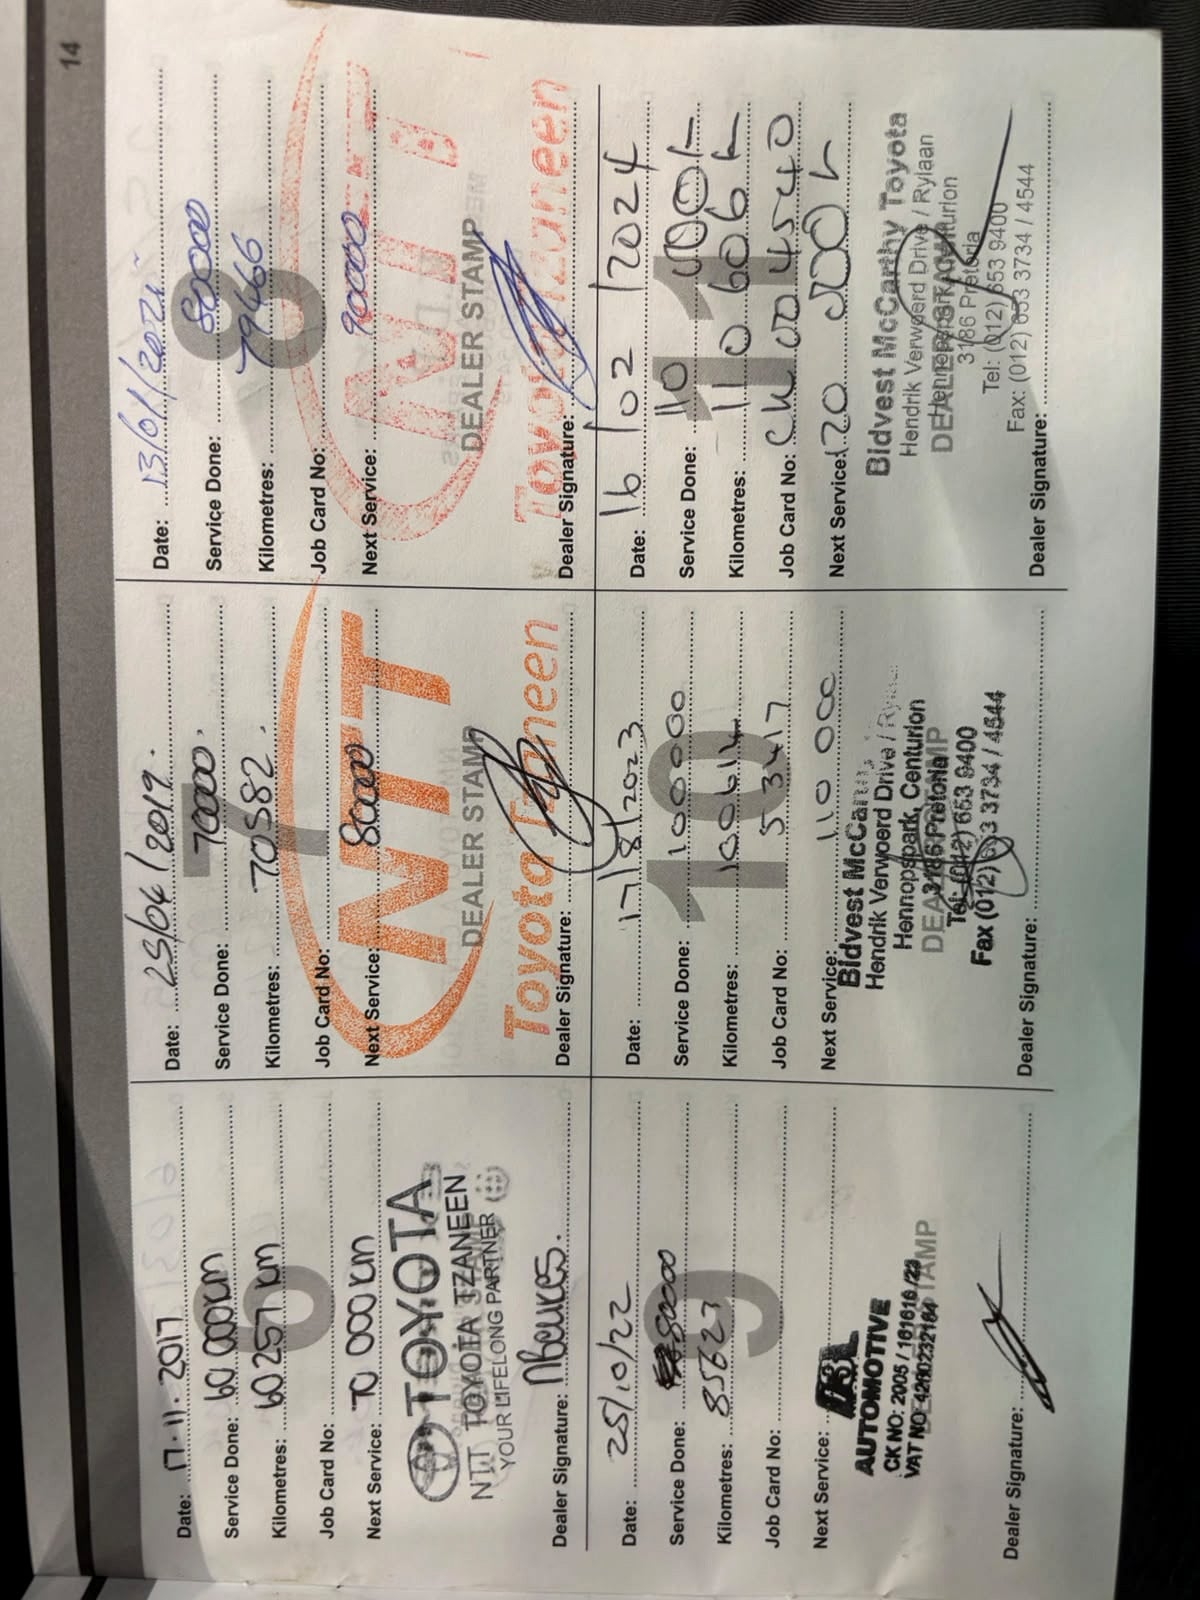 14
6
Date: 17.11.2017
Service Done: 60 000 km
Kilometres: 60 257 km
Job Card No:
Next Service: 70 000 km
TOYOTA
NTT TOYOTA TZANEEN
YOUR LIFELONG PARTNER
DEALER STAMP
Dealer Signature:
7
Date: 23/04/2019.
Service Done: 70000.
Kilometres: 70582.
Job Card No:
Next Service: 80000
NTT
DEALER STAMP
Toyota Tzaneen
Dealer Signature:
8
Date: 13/01/2021
Service Done: 80000
Kilometres: 79466
Job Card No:
Next Service: 90000
NTT
DEALER STAMP
Toyota Tzaneen
Dealer Signature:
9
Date: 25/10/22
Service Done: 80000
Kilometres: 85623
Job Card No:
Next Service:
AUTOMOTIVE
CK NO: 2005 / 161616 / 23
VAT NO: 4210232164
DEALER STAMP
Dealer Signature:
10
Date: 17/8/2023
Service Done: 100000
Kilometres: 100614
Job Card No: 5 3417
Next Service: 110 000
Bidvest McCarthy
Hendrik Verwoerd Drive / Rylaan
Hennopspark, Centurion
DEALER STAMP
3186 Pretoria
Tel: (012) 653 9400
Fax (012) 653 3734 / 4544
Dealer Signature:
11
Date: 16/02/2024
Service Done: 110 000/-
Kilometres: 110 606 k
Job Card No: CW004540
Next Service: 120 000 k
Bidvest McCarthy Toyota
Hendrik Verwoerd Drive / Rylaan
Hennopspark, Centurion
DEALER STAMP
3186 Pretoria
Tel: (012) 653 9400
Fax: (012) 653 3734 / 4544
Dealer Signature: